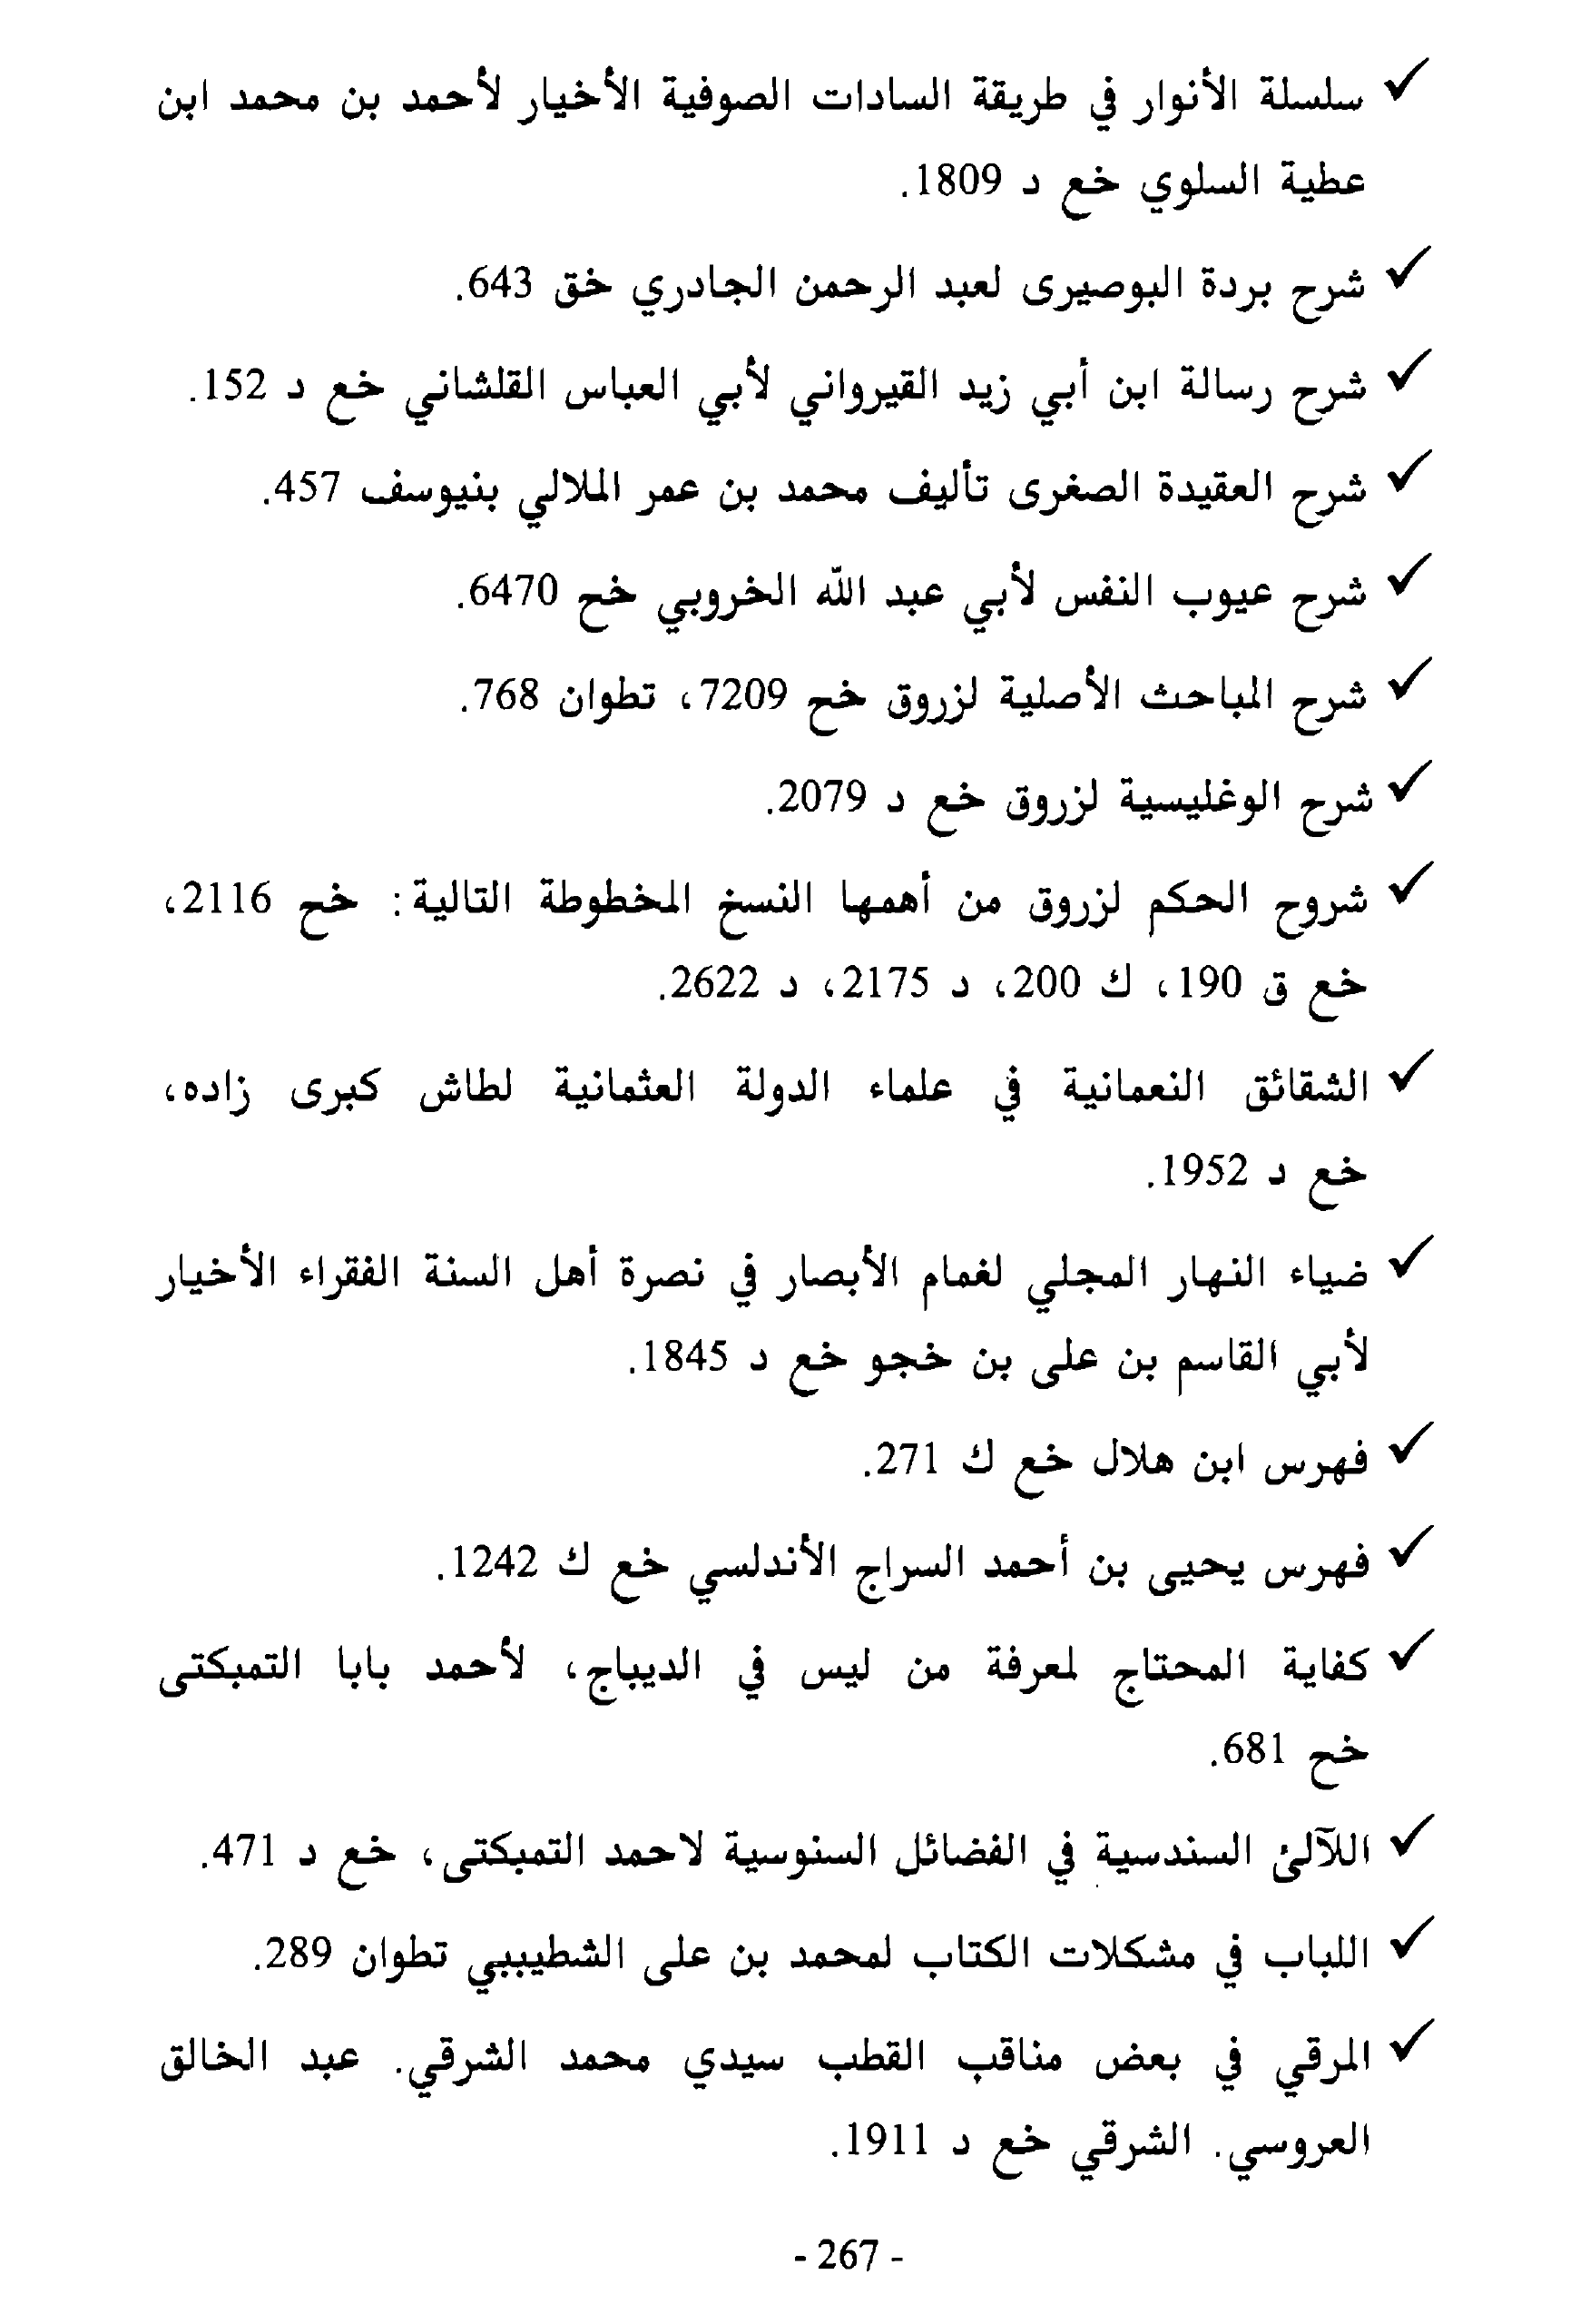 ✓ سلسلة الأنوار في طريقة السادات الصوفية الأخيار لأحمد بن محمد ابن
عطية السلوي خع د 1809.
✓ شرح بردة البوصيرى لعبد الرحمن الجادري خق 643.
✓ شرح رسالة ابن أبي زيد القيرواني لأبي العباس القلشاني خع د 152.
✓ شرح العقيدة الصغرى تأليف محمد بن عمر الملالي بنيوسف 457.
✓ شرح عيوب النفس لأبي عبد الله الخروبي خح 6470.
✓ شرح المباحث الأصلية لزروق خح 7209، تطوان 768.
✓ شرح الوغليسية لزروق خع د 2079.
✓ شروح الحكم لزروق من أهمها النسخ المخطوطة التالية: خح 2116،
خع ق 190، ك 200، د 2175، د 2622.
✓ الشقائق النعمانية في علماء الدولة العثمانية لطاش كبرى زاده،
خع د 1952.
✓ ضياء النهار المجلي لغمام الأبصار في نصرة أهل السنة الفقراء الأخيار
لأبي القاسم بن على بن خجو خع د 1845.
✓ فهرس ابن هلال خع ك 271.
✓ فهرس يحيى بن أحمد السراج الأندلسي خع ك 1242.
✓ كفاية المحتاج لمعرفة من ليس في الديباج، لأحمد بابا التمبكتى
خح 681.
✓ اللآلئ السندسية في الفضائل السنوسية لاحمد التمبكتى، خع د 471.
✓ اللباب في مشكلات الكتاب لمحمد بن على الشطيببي تطوان 289.
✓ المرقي في بعض مناقب القطب سيدي محمد الشرقي. عبد الخالق
العروسي. الشرقي خع د 1911.
- 267 -